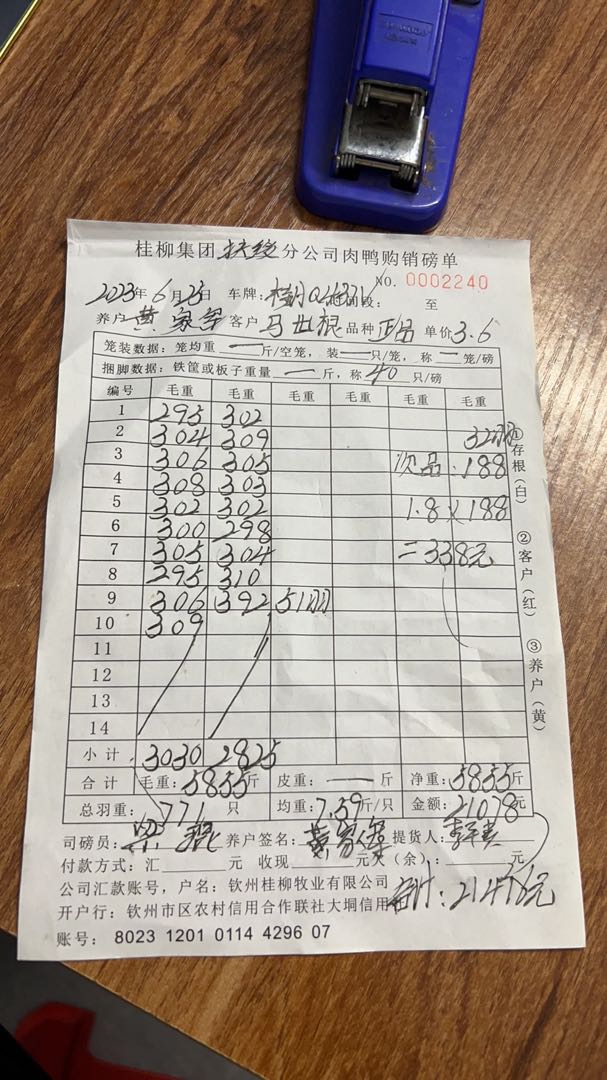 桂柳集团扶绥分公司肉鸭购销磅单
NO. 0002240
2023年6月23日 车牌: 时间段: 至
养户 黄家 客户 马世根 品种 正品 单价3.6
笼装数据: 笼均重 — 斤/空笼, 装 — 只/笼, 称 — 笼/磅
捆脚数据: 铁筐或板子重量 — 斤, 称 40 只/磅
编号 毛重 毛重 毛重 毛重 毛重 毛重
1 295 302
2 304 309 32羽
3 306 305 次品. 188
4 308 303
5 302 302 1.8×188
6 300 298
7 305 304 =338元
8 295 310
9 306 392 51羽
10 309
11
12
13
14
小计 3030 2825
合计 毛重: 5855斤 皮重: — 斤 净重: 5855斤
总羽重: 771 只 均重: 7.59斤/只 金额: 21078元
司磅员: 养户签名: 黄家 提货人:
付款方式: 汇 元 收现 元 欠(余): 元
公司汇款账号, 户名: 钦州桂柳牧业有限公司
开户行: 钦州市区农村信用合作联社大垌信用社
合计: 21416元
账号: 8023 1201 0114 4296 07
①存根(白) ②客户(红) ③养户(黄)